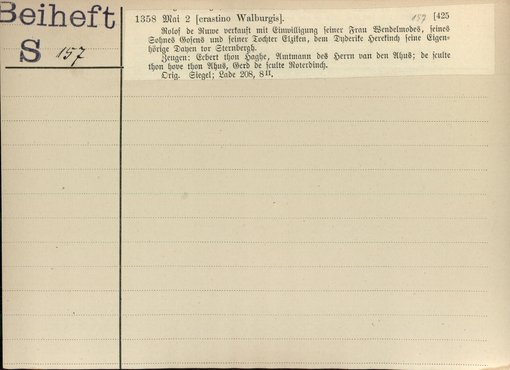 Beiheft
S 157
1358 Mai 2 [crastino Walburgis]. 157 [425
Rolof de Ruwe verkauft mit Einwilligung seiner Frau Wendelmodes, seines
Sohnes Gosens und seiner Tochter Elziken, dem Dyderike Herekinch seine Eigen-
hörige Dayen tor Sternbergh.
Zeugen: Ecbert thon Haghe, Amtmann des Herrn van den Ahus; de sculte
thon hove thon Ahus, Gerd de sculte Noterdinch.
Orig. Siegel; Lade 208, 8 II.